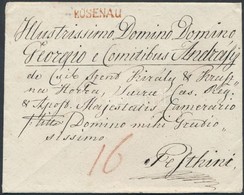 ROSENAU
Illustrissimo Domino Domino
Georgio e Comitibus Andrássy
de Csik Szent Király & Krasz-
na Horka, Sacrae Caes. Reg.
& Apost. Majestatis Camerario
Domino mihi Gratio
sissimo
16